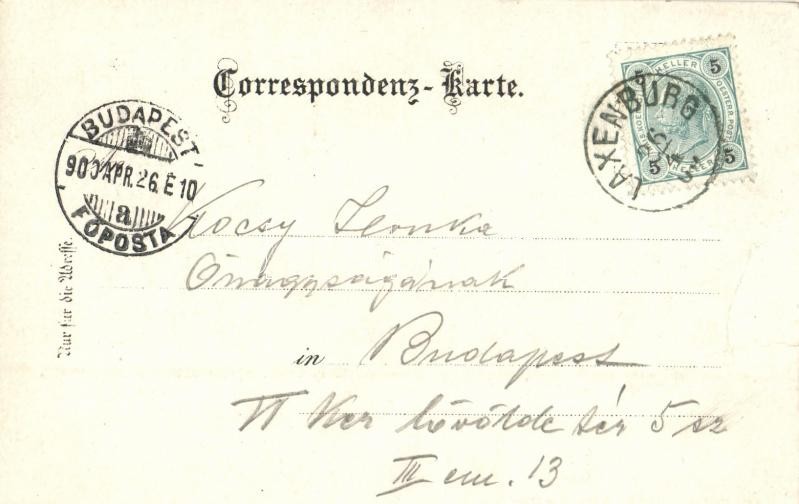 Correspondenz-Karte.
5 HELLER 5
5 HELLER 5
LAXENBURG
BUDAPEST
900 APR. 26. E 10
a
FŐPOSTA
Kocsy Ilonka
Őnagyságának
in Budapest
VI Ker lövölde tér 5 sz
III em. 13
Nur für die Adresse.